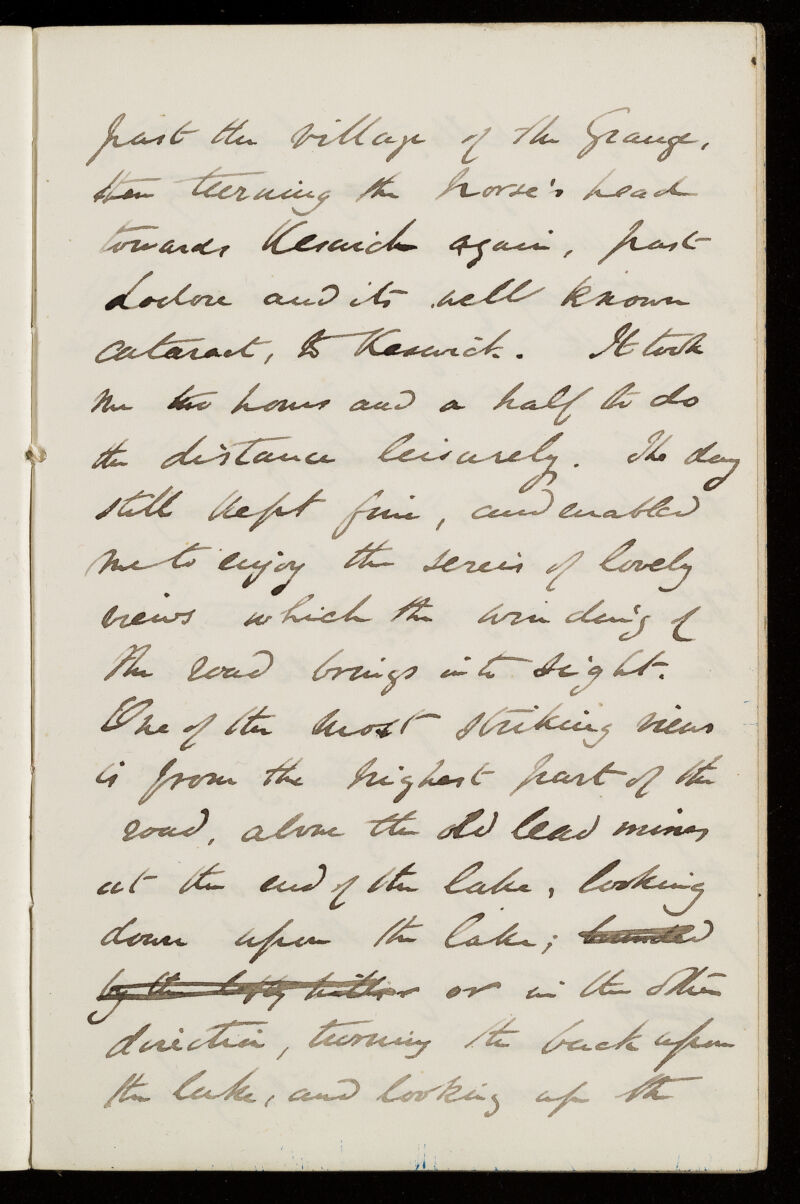 past the village of the Grange,
then turning the horse's head
towards Keswick again, past
Lodore and its well known
cataract, to Keswick. It took
me two hours and a half to do
the distance leisurely. The day
still kept fine, and enabled
me to enjoy the series of lovely
views which the winding of
the road brings into sight.
One of the most striking views
is from the highest part of the
road, above the old lead mines
at the end of the lake, looking
down upon the lake; bounded
by the lofty hills or in the other
direction, turning the back upon
the lake, and looking up the